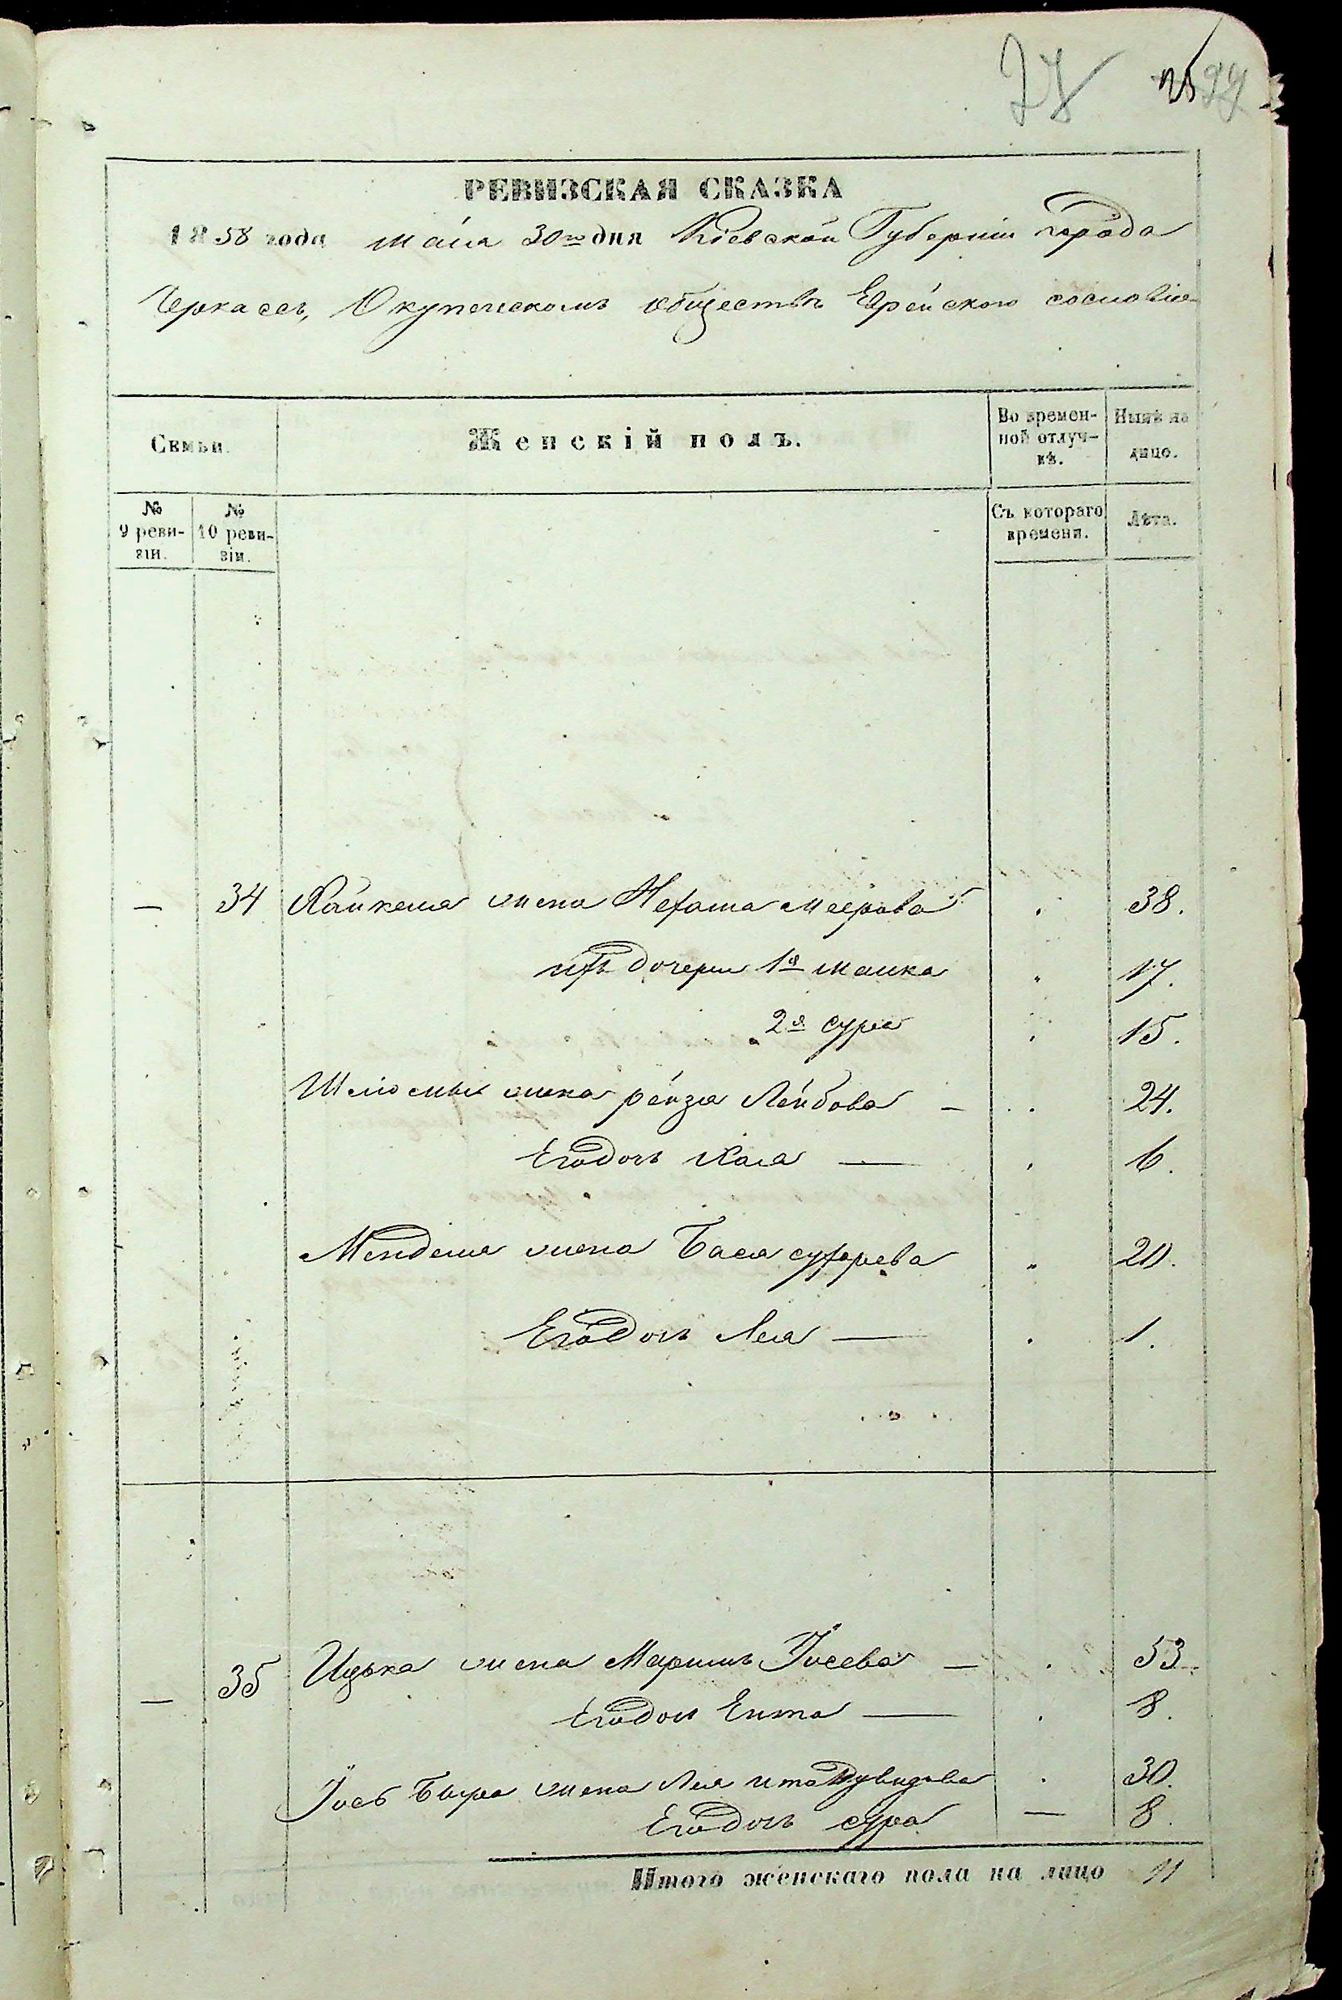 27 25 27
РЕВИЗСКАЯ СКАЗКА
1858 года мая 30го дня Кіевской Губерніи города
Черкассъ, Окупеческомъ обществѣ Еврейскаго сословія
Семьи. Женскій полъ. Во времен-ной отлуч-кѣ. Нынѣ на лицо.
№ 9 реви-зіи. № 10 реви-зіи. Съ котораго времени. Лѣта.
— 34 жена меерова 38.
ихъ дочери 1я малка 17.
2я сура 15.
Шлiомы жена рейзя Лейбова — 24.
Его дочь Хая — 6.
Менделя жена Бася 20.
Его дочь Лея — 1.
— 35 Ицька жена Марьимъ Іосева — 53.
Его дочь Ента — 8.
Іось Бера жена Лея ита Дувидова 30.
Его дочь сура — 8.
Итого женскаго пола на лицо 11